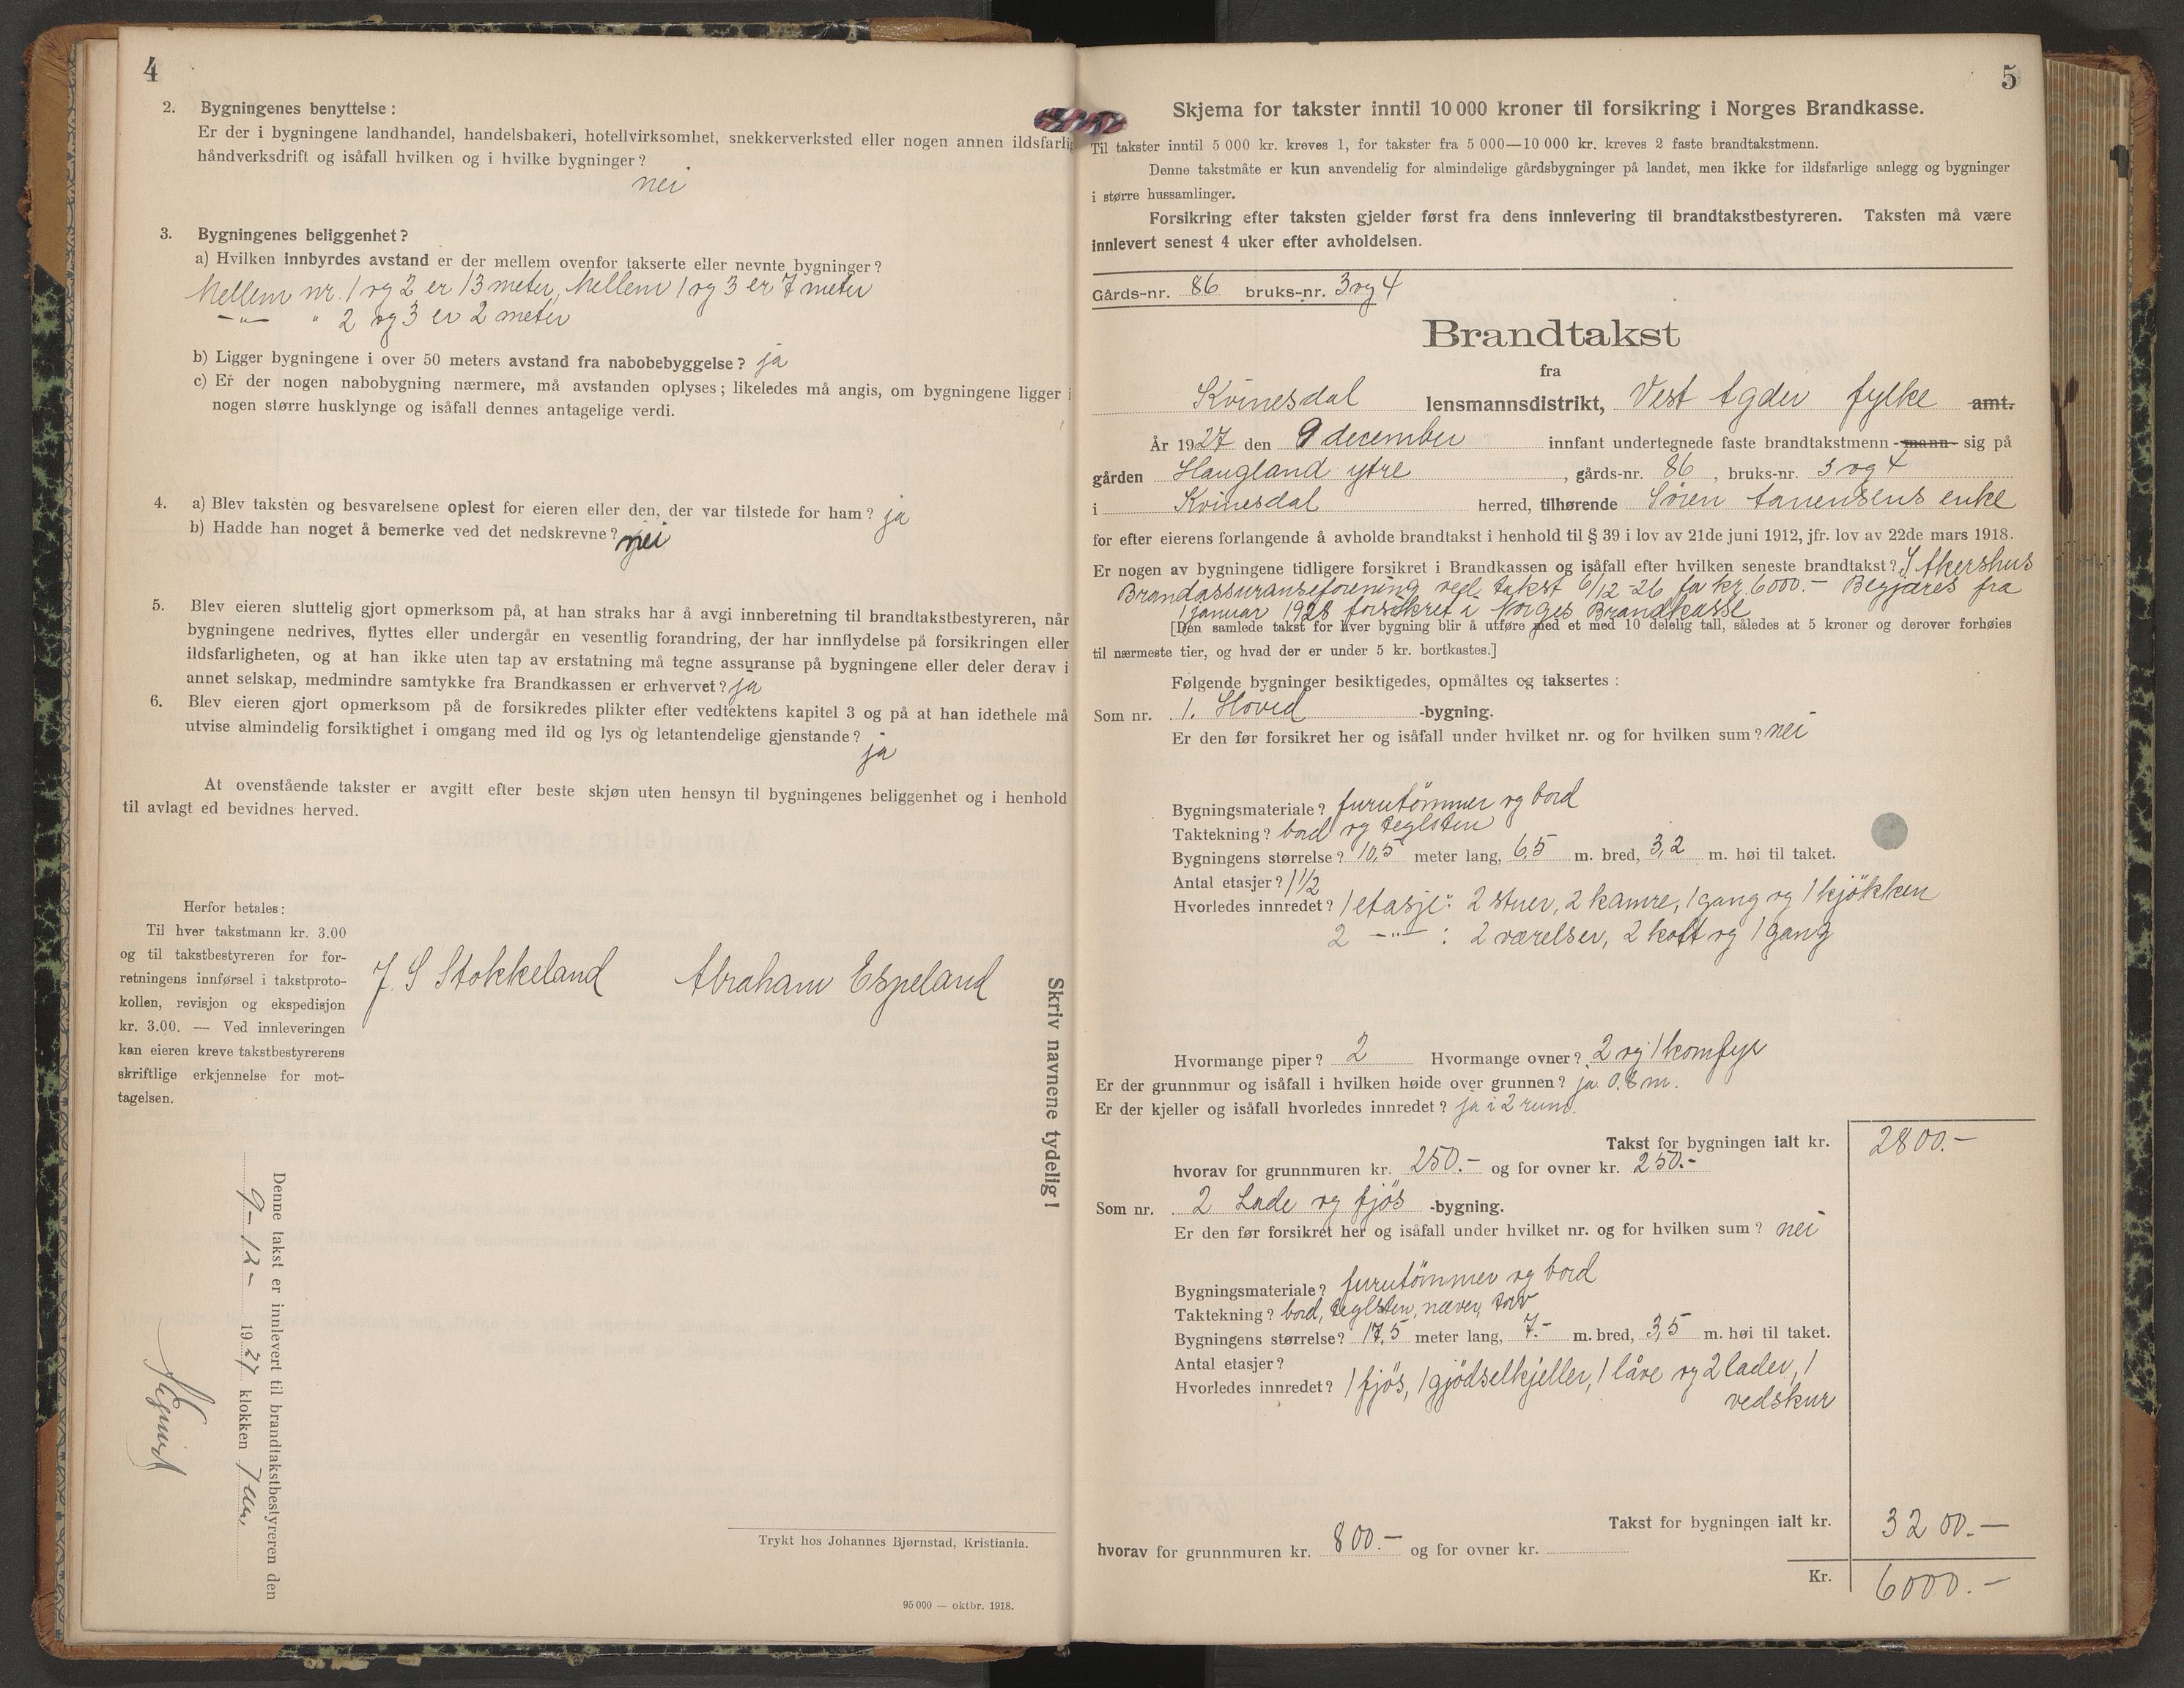 4
2. Bygningenes benyttelse:
Er der i bygningene landhandel, handelsbakeri, hotellvirksomhet, snekkerverksted eller nogen annen ildsfarlig
håndverksdrift og isåfall hvilken og i hvilke bygninger?
nei
3. Bygningenes beliggenhet?
a) Hvilken innbyrdes avstand er der mellem ovenfor takserte eller nevnte bygninger?
Mellem nr. 1 og 2 er 13 meter, Mellem 1 og 3 er 7 meter
—"— " 2 og 3 er 2 meter
b) Ligger bygningene i over 50 meters avstand fra nabobebyggelse? ja
c) Er der nogen nabobygning nærmere, må avstanden oplyses; likeledes må angis, om bygningene ligger i
nogen større husklynge og isåfall dennes antagelige verdi.
4. a) Blev taksten og besvarelsene oplest for eieren eller den, der var tilstede for ham? ja
b) Hadde han noget å bemerke ved det nedskrevne? nei
5. Blev eieren sluttelig gjort opmerksom på, at han straks har å avgi innberetning til brandtakstbestyreren, når
bygningene nedrives, flyttes eller undergår en vesentlig forandring, der har innflydelse på forsikringen eller
ildsfarligheten, og at han ikke uten tap av erstatning må tegne assuranse på bygningene eller deler derav i
annet selskap, medmindre samtykke fra Brandkassen er erhvervet? ja
6. Blev eieren gjort opmerksom på de forsikredes plikter efter vedtektens kapitel 3 og på at han idethele må
utvise almindelig forsiktighet i omgang med ild og lys og letantendelige gjenstande?
ja
At ovenstående takster er avgitt efter beste skjøn uten hensyn til bygningenes beliggenhet og i henhold
til avlagt ed bevidnes herved.
Herfor betales:
Til hver takstmann kr. 3.00
og til takstbestyreren for for-
retningens innførsel i takstproto-
kollen, revisjon og ekspedisjon
kr. 3.00. — Ved innleveringen
kan eieren kreve takstbestyrerens
skriftlige erkjennelse for mot-
tagelsen.
J. S Stokkeland Abraham Espeland
Skriv navnene tydelig!
Denne takst er innlevert til brandtakstbestyreren den
9-12- 1927 klokken 7
Trykt hos Johannes Bjørnstad, Kristiania.
95 000 — oktbr. 1918.
5
Skjema for takster inntil 10 000 kroner til forsikring i Norges Brandkasse.
Til takster inntil 5 000 kr. kreves 1, for takster fra 5 000—10 000 kr. kreves 2 faste brandtakstmenn.
Denne takstmåte er kun anvendelig for almindelige gårdsbygninger på landet, men ikke for ildsfarlige anlegg og bygninger
i større hussamlinger.
Forsikring efter taksten gjelder først fra dens innlevering til brandtakstbestyreren. Taksten må være
innlevert senest 4 uker efter avholdelsen.
Gårds-nr. 86 bruks-nr. 3 og 4
Brandtakst
fra
Kvinesdal lensmannsdistrikt, Vest Agder fylke amt.
År 1927 den 9 december innfant undertegnede faste brandtakstmenn - mann - sig på
gården Haugland ytre, gårds-nr. 86, bruks-nr. 3 og 4
i Kvinesdal herred, tilhørende Sören Tanensens enke
for efter eierens forlangende å avholde brandtakst i henhold til § 39 i lov av 21de juni 1912, jfr. lov av 22de mars 1918.
Er nogen av bygningene tidligere forsikret i Brandkassen og isåfall efter hvilken seneste brandtakst? I Akershus
Brandassuranseforening ved takst 6/12-26 fa kr. 6000.- Begjæres fra
1 januar 1928 forsikret i Norges Brandkasse
[Den samlede takst for hver bygning blir å utføre med et med 10 delelig tall, således at 5 kroner og derover forhøies
til nærmeste tier, og hvad der er under 5 kr. bortkastes.]
Følgende bygninger besiktigedes, opmåltes og taksertes:
Som nr. 1. Hoved -bygning.
Er den før forsikret her og isåfall under hvilket nr. og for hvilken sum? nei
Bygningsmateriale? furutömmer og bord
Taktekning? bord og teglsten
Bygningens størrelse? 10,5 meter lang, 6,5 m. bred, 3,2 m. høi til taket.
Antal etasjer? 1 1/2
Hvorledes innredet? 1 etasje: 2 stuer, 2 kamre, 1 gang og 1 kjökken
2 —"— : 2 værelser, 2 kott og 1 gang
Hvormange piper? 2 Hvormange ovner? 2 og 1 komfyr
Er der grunnmur og isåfall i hvilken høide over grunnen? ja 0.8 m.
Er der kjeller og isåfall hvorledes innredet? ja i 2 rum.
Takst for bygningen ialt kr. 2800.-
hvorav for grunnmuren kr. 250.- og for ovner kr. 250.-
Som nr. 2 Lade og fjös -bygning.
Er den før forsikret her og isåfall under hvilket nr. og for hvilken sum? nei
Bygningsmateriale? furutömmer og bord
Taktekning? bord, teglsten, næver, torv
Bygningens størrelse? 17,5 meter lang, 7.- m. bred, 3,5 m. høi til taket.
Antal etasjer?
Hvorledes innredet? 1 fjös, 1 gjödselkjeller, 1 låve og 2 lader, 1
vedskur
Takst for bygningen ialt kr. 3200.-
hvorav for grunnmuren kr. 800.- og for ovner kr.
Kr. 6000.-